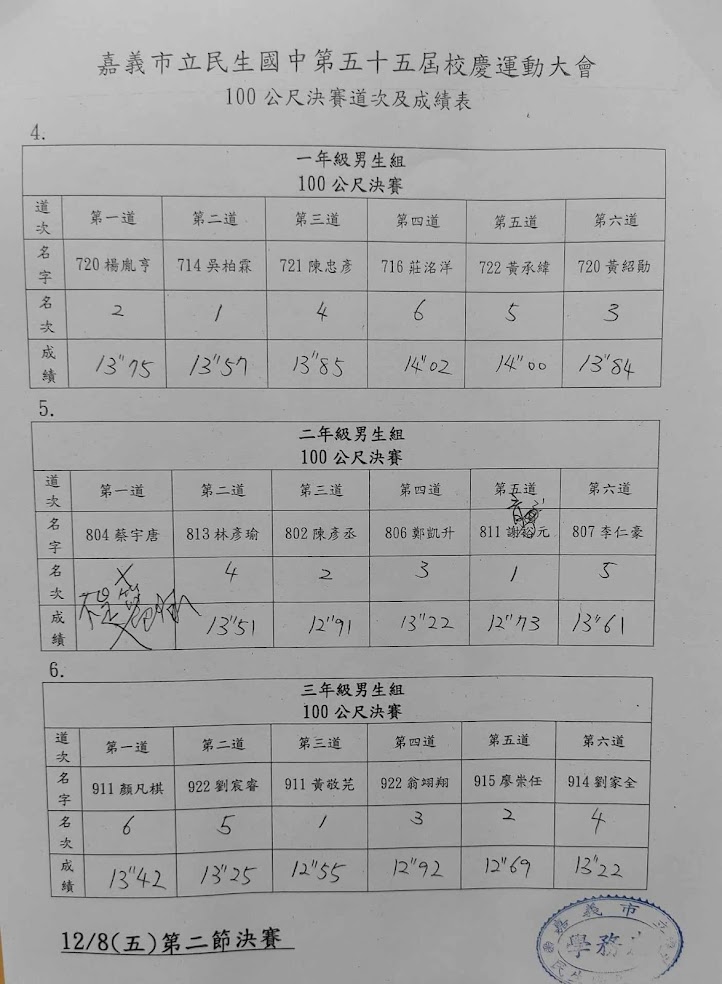 嘉義市立民生國中第五十五屆校慶運動大會
100公尺決賽道次及成績表
4.
一年級男生組
100公尺決賽
道次 第一道 第二道 第三道 第四道 第五道 第六道
名字 720 楊胤亨 714 吳柏霖 721 陳忠彥 716 莊洺洋 722 黃承緯 720 黃紹勛
名次 2 1 4 6 5 3
成績 13"75 13"57 13"85 14"02 14"00 13"84
5.
二年級男生組
100公尺決賽
道次 第一道 第二道 第三道 第四道 第五道 第六道
名字 804 蔡宇唐 813 林彥瑜 802 陳彥丞 806 鄭凱升 811 謝 元 807 李仁豪
名次 X 4 2 3 1 5
成績 13"51 12"91 13"22 12"73 13"61
6.
三年級男生組
100公尺決賽
道次 第一道 第二道 第三道 第四道 第五道 第六道
名字 911 顏凡棋 922 劉宸睿 911 黃敬芫 922 翁翊翔 915 廖崇任 914 劉家全
名次 6 5 1 3 2 4
成績 13"42 13"25 12"55 12"92 12"69 13"22
12/8(五)第二節決賽
嘉義市立
學務
民生